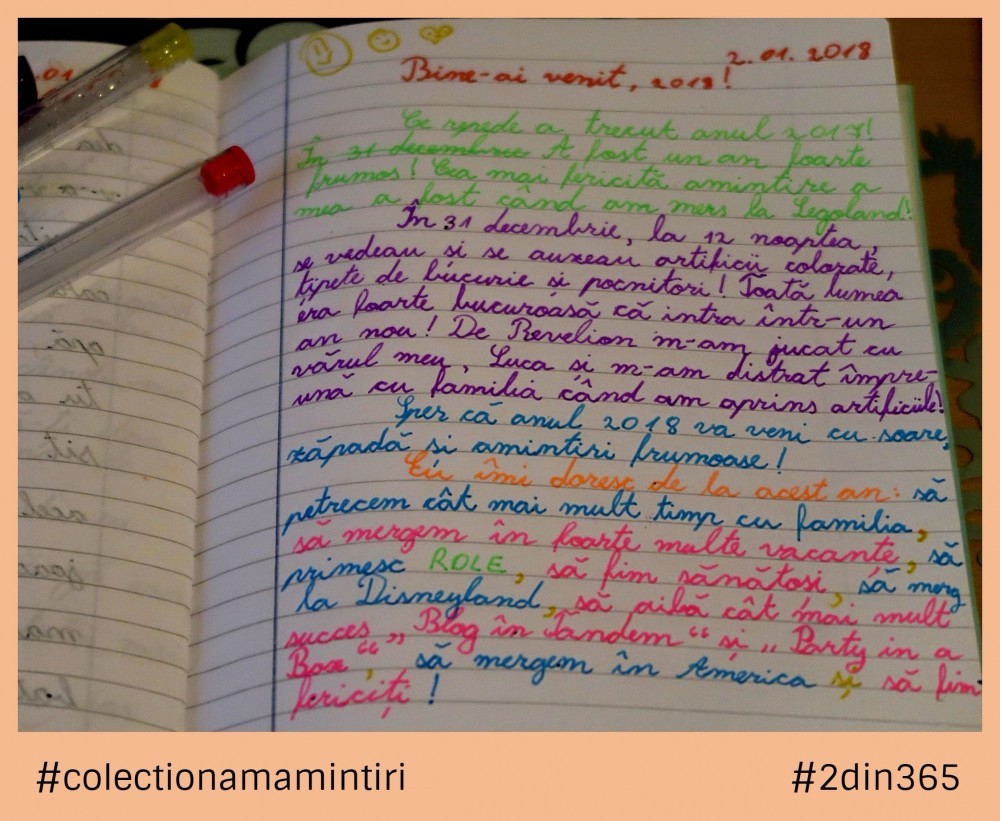 2.01.2018
Bine-ai venit, 2018!
Ce repede a trecut anul 2017!
În 31 decembrie A fost un an foarte
frumos! Cea mai fericită amintire a
mea a fost când am mers la Legoland!
În 31 decembrie, la 12 noaptea,
se vedeau și se auzeau artificii colorate,
țipete de bucurie și pocnitori! Toată lumea
era foarte bucuroasă că intra într-un
an nou! De Revelion m-am jucat cu
vărul meu, Luca și m-am distrat împre-
ună cu familia când am aprins artificiile!
Sper că anul 2018 va veni cu soare,
zăpadă și amintiri frumoase!
Eu îmi doresc de la acest an: să
petrecem cât mai mult timp cu familia,
să mergem în foarte multe vacanțe, să
primesc ROLE, să fim sănătoși, să merg
la Disneyland, să aibă cât mai mult
succes „Blog în Tandem“ și „Party in a
Box“, să mergem în America și să fim
fericiți!
#colectionamamintiri
#2din365